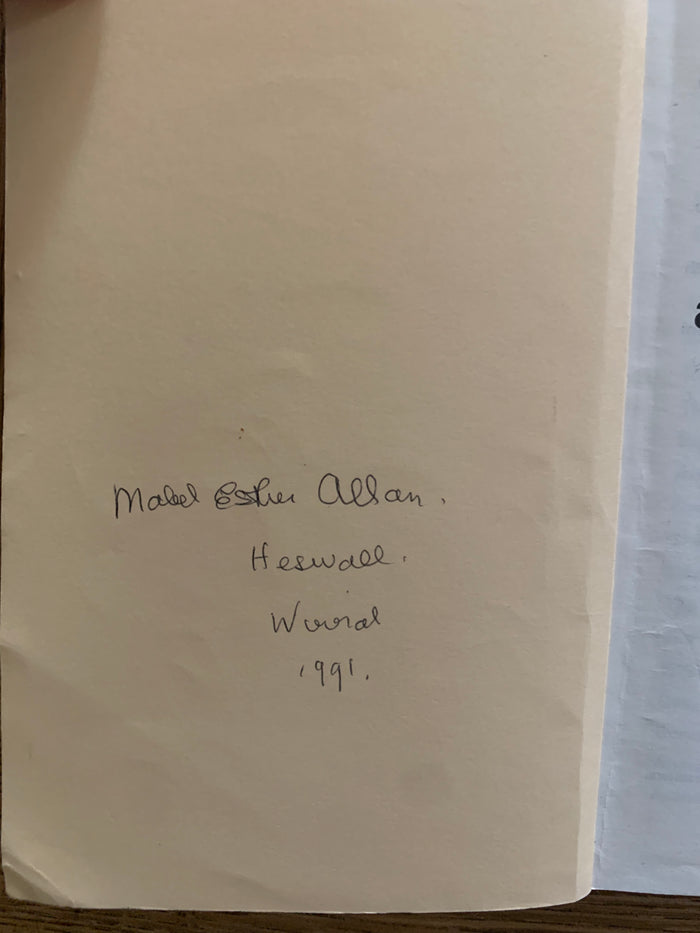 Mabel Esther Allan.
Heswall.
Wirral
1991.